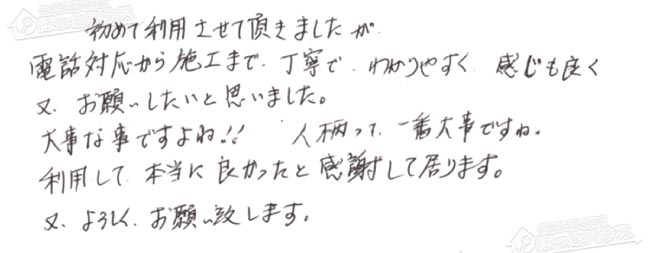 初めて利用させて頂きましたが
電話対応から施工まで、丁寧で、わかりやすく 感じも良く
又、お願いしたいと思いました。
大事な事ですよね!! 人柄って、一番大事ですね。
利用して、本当に良かったと感謝して居ります。
又、よろしく、お願い致します。